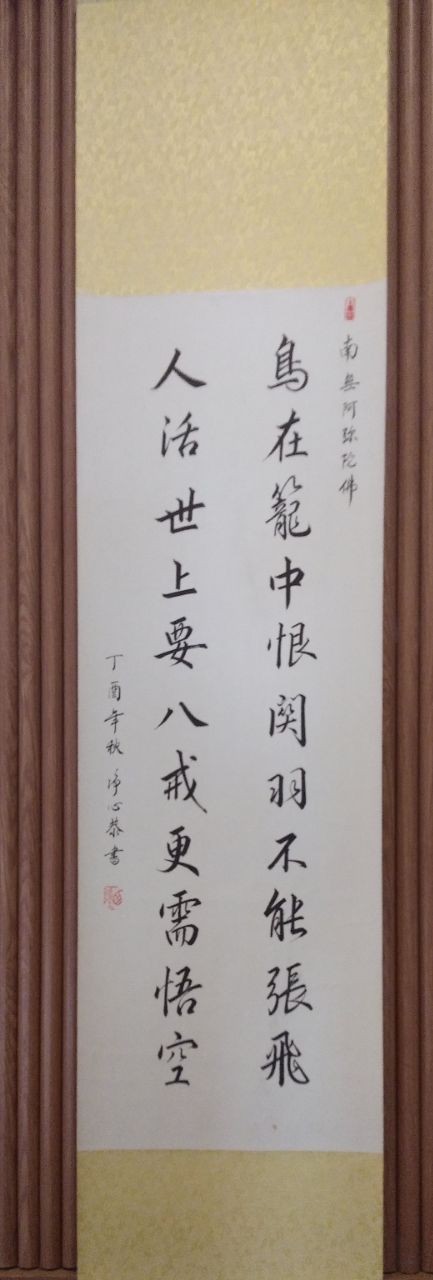 南無阿弥陀佛
鳥在籠中恨関羽不能張飛
人活世上要八戒更需悟空
丁酉年秋净心恭書